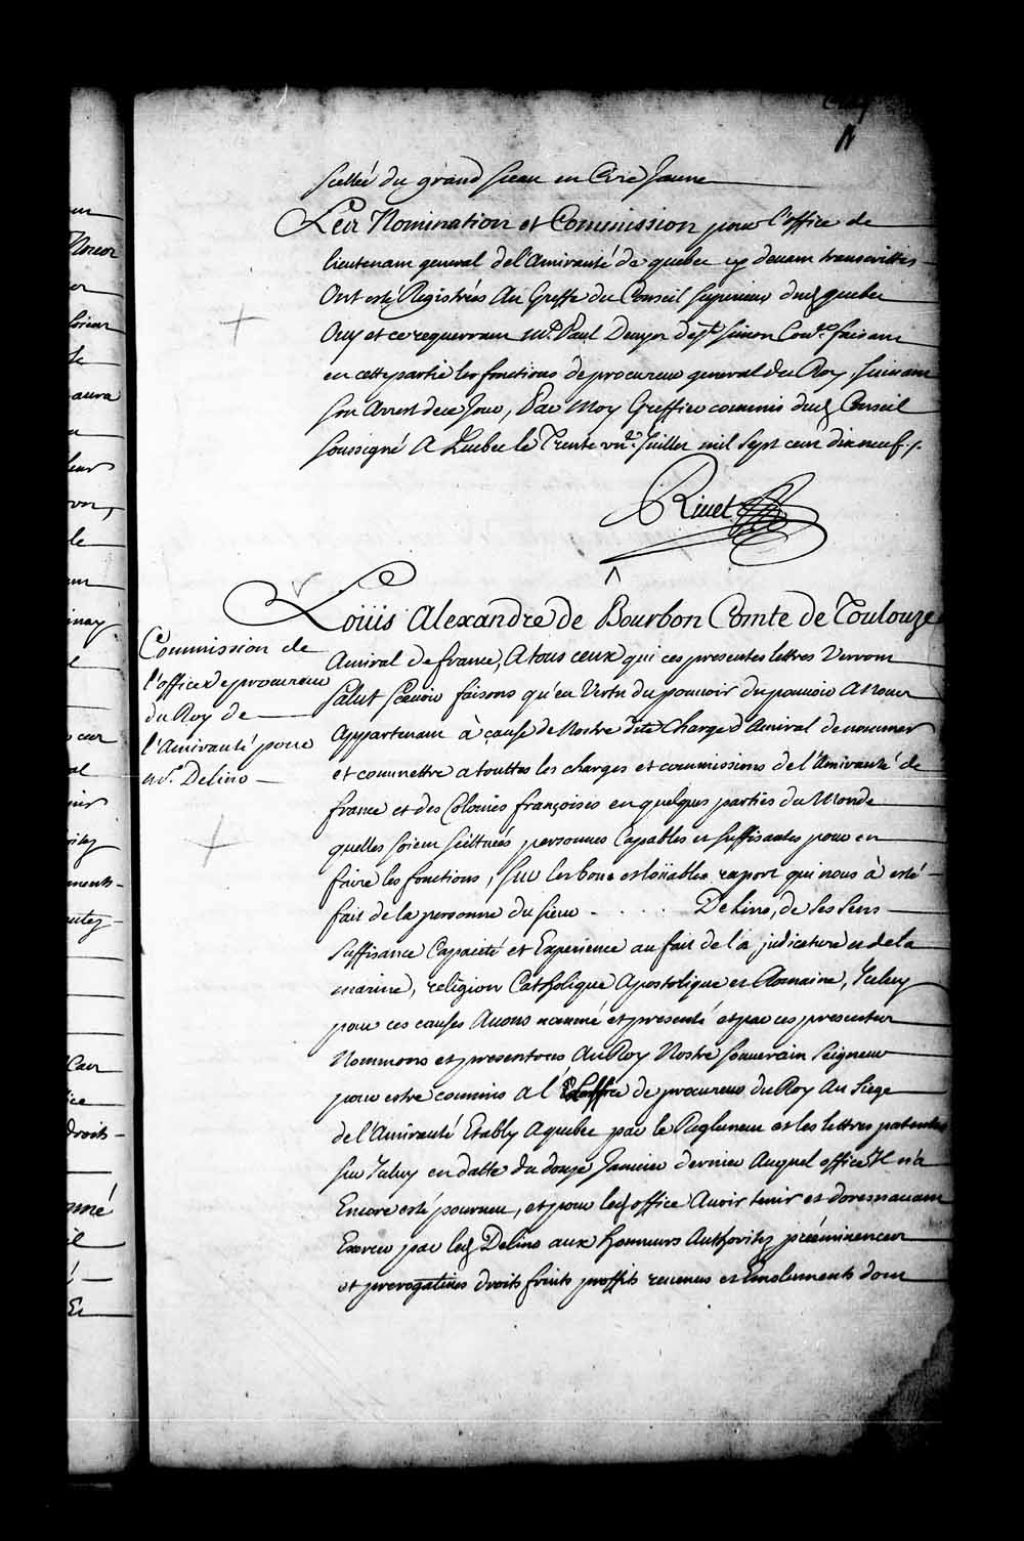 Scellée du grand sceau en Cire Jaune
Les Nomination et Commission pour l'office de
lieutenant general de l'amirauté de quebec cy devant transcrittes
Ont esté Registrées Au Greffe du Conseil superieur dud quebec
Ouy et ce requerrant Mr. Paul Denys de St. Simon Conr. faisant
en cette partie les fonctions de procureur general du Roy suivant
son Arrest de ce Jour, Par Moy Greffier commis dud Conseil
soussigné A Quebec le Trente un Juillet mil sept cent dix neuf
Rivet
Louis Alexandre de Bourbon Comte de Toulouze
Amiral de france, A tous ceux qui ces presentes lettres verront
Salut Scavoir faisons qu'en Vertu du pouvoir du pouvoir A nous
Appartenant à cause de Nostre dite Charge d'Amiral de nommer
et commettre a touttes les charges et commissions de l'Amirauté de
france et des Colonies françoises en quelques parties du Monde
quelles soient scituées personnes Capables et suffisantes pour en
faire les fonctions, sur les bons et loüables raport qui nous à esté
fait de la personne du sieur . . . . Delino, de ses sens
suffisance Capacité et Experience au fait de la judicature et de la
marine, religion Catholique Apostolique et Romaine, Iceluy
pour ces causes Avons nommé et presenté et par ces presentes
Nommons et presentons Au Roy Nostre souverain seigneur
pour estre commis a l'office de procureur du Roy Au Siege
de l'Amirauté Etably a quebec par le Reglement et les lettres patentes
sur Iceluy en datte du douze Janvier dernier Auquel office Il n'a
Encore esté pourveu, et pour led office Avoir tenir et doresnavant
Exercer par led Delino aux honneurs Authoritez préeminences
et prerogatives droits fruits proffits revenus et Emoluments dont
Commission de
l'office de procureur
du Roy de
l'Amirauté pour
Mr. Delino